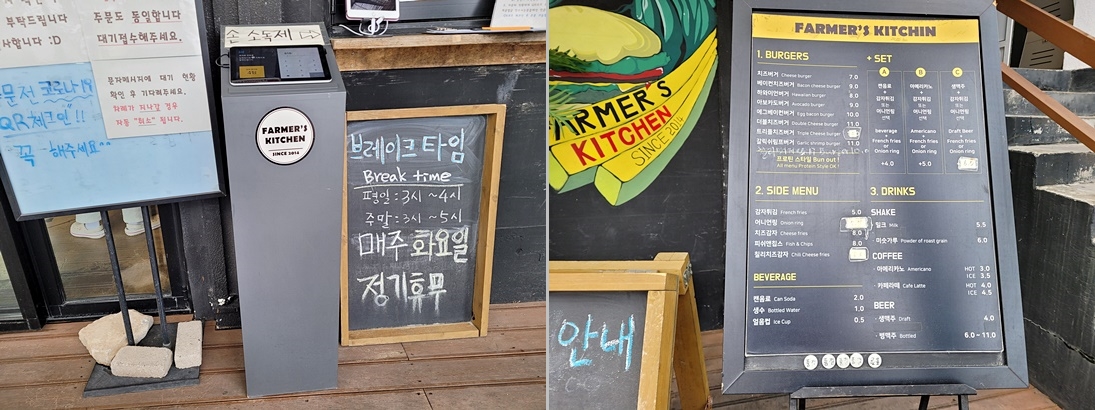 부탁드립니다
사합니다 :D
주문도 동일합니다
대기접수해주세요.
문자메시지에 대기 현황
확인 후 기다려주세요.
차례가 지나갈 경우
자동 "취소" 됩니다.
문전 코로나
QR체크인!!
꼭 해주세요~~
손 소독제
FARMER'S
KITCHEN
SINCE 2014
브레이크 타임
Break time
평일 : 3시 ~ 4시
주말 : 3시 ~ 5시
매주 화요일
정기휴무
FARMER'S
KITCHEN
SINCE 2014
안내
FARMER'S KITCHIN
1. BURGERS
치즈버거 Cheese burger 7.0
베이컨치즈버거 Bacon cheese burger 9.0
하와이언버거 Hawaiian burger 8.0
아보카도버거 Avocado burger 9.0
에그베이컨버거 Egg bacon burger 10.0
더블치즈버거 Double Cheese burger 11.0
트리플치즈버거 Triple Cheese burger
갈릭쉬림프버거 Garlic shrimp burger
프로틴 스타일 Bun out !
All menu Protein Style OK !
+ SET
A
캔음료
+
감자튀김
또는
어니언링
선택
beverage
+
French fries
or
Onion ring
+4.0
B
아메리카노
+
감자튀김
또는
어니언링
선택
Americano
+
French fries
or
Onion ring
+5.0
C
생맥주
+
감자튀김
또는
어니언링
선택
Draft Beer
+
French fries
or
Onion ring
2. SIDE MENU
감자튀김 French fries 5.0
어니언링 Onion ring
치즈감자 Cheese fries 8.0
피쉬앤칩스 Fish & Chips 8.0
칠리치즈감자 Chili Cheese fries
BEVERAGE
캔음료 Can Soda 2.0
생수 Bottled Water 1.0
얼음컵 Ice Cup 0.5
3. DRINKS
SHAKE
밀크 Milk 5.5
미숫가루 Powder of roast grain 6.0
COFFEE
아메리카노 Americano HOT 3.0
ICE 3.5
카페라떼 Cafe Latte HOT 4.0
ICE 4.5
BEER
생맥주 Draft 4.0
병맥주 Bottled 6.0 ~ 11.0